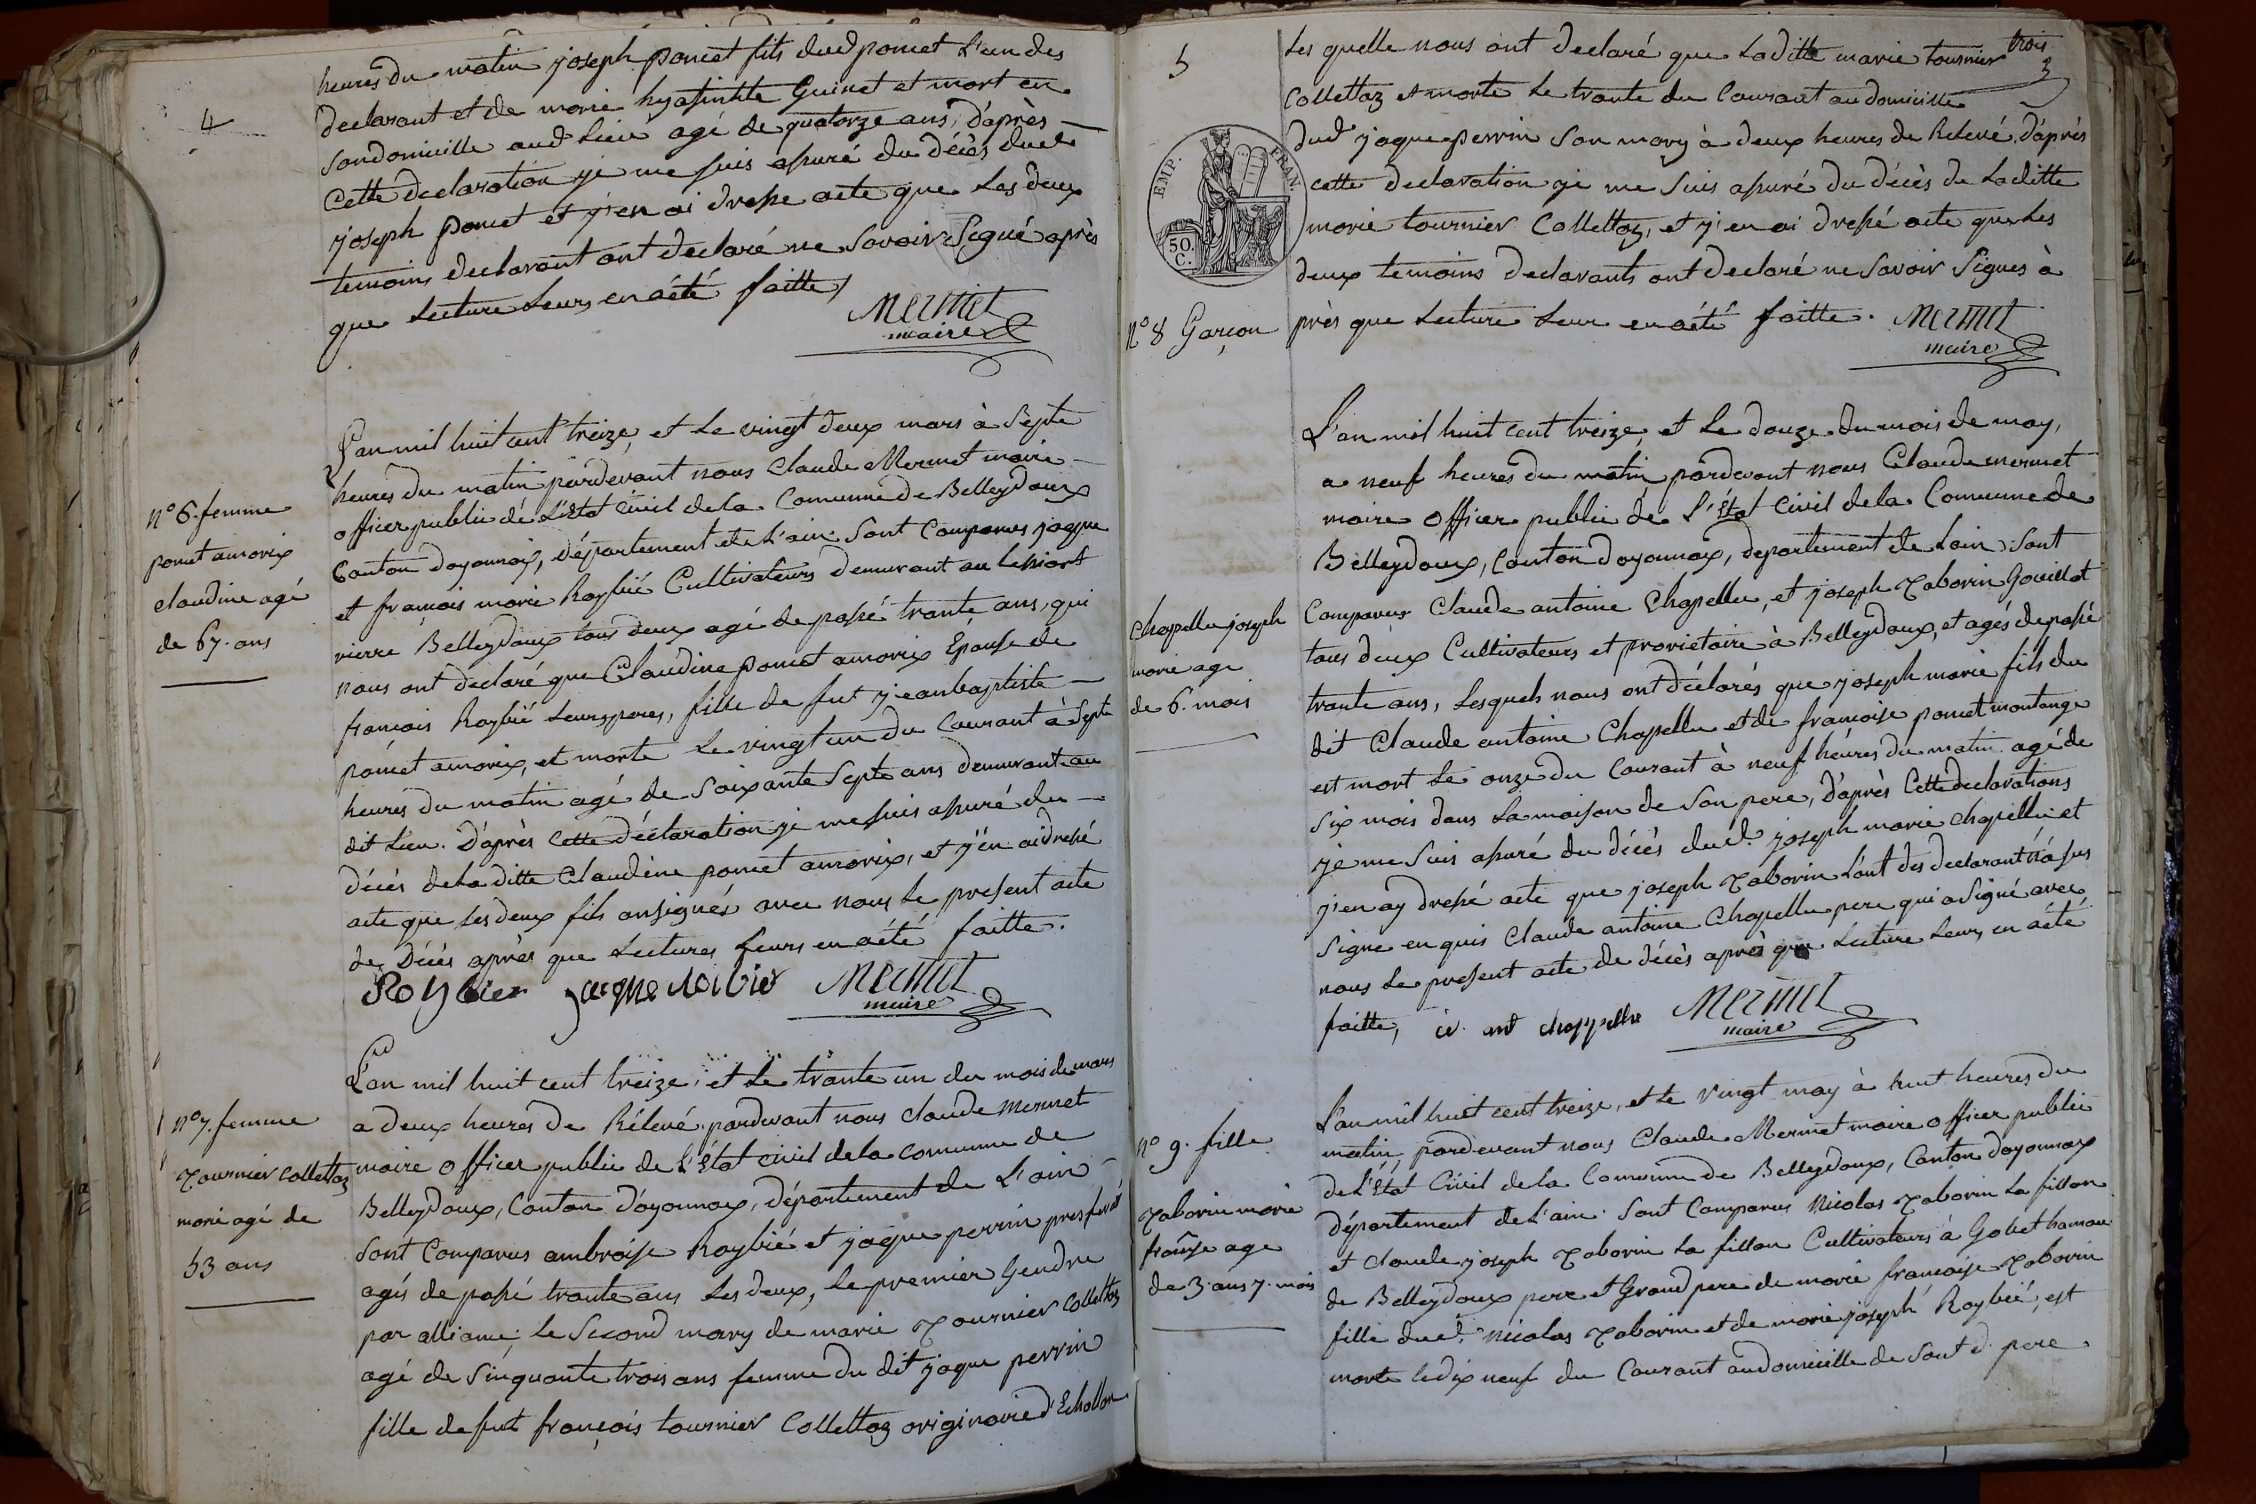 4
heures du matin joseph poncet fils dud poncet L'un des
declarant et de marie hyasinhte Guinet et mort en
son domicille aud Lieu agé de quatorze ans, d'après
Cette declaration je me suis assuré du décès dud
joseph poncet et j'en ai dresse acte que Les deux
temoins declarant ont declaré ne Savoir Signé après
que Lecture Leurs en a été faitte
Mermet
maire
n° 6. femme
poncet amorix
claudine agé
de 67. ans
L'an mil huit cent treize, et Le vingt deux mars à Septe
heures du matin pardevant nous Claude Mermet maire
officer public de L'état Civil de la Comunne de Belleydoux
Canton doyonnax, département de L'ain Sont Comparues jaque
et francois marie Roybié Cultivateurs demurant au
vierre Belleydoux tous deux agé de passé trante ans, qui
nous ont declaré que Claudine poncet amorix Epouse de
françois Roybié Leurs peres, fille de fut jean baptiste
poncet amorix, et morte Le vingt un du Courant à Septe
heures du matin agé de Soixante Septe ans demurant au
dit Lieu. D'après Cette déclaration je me suis assuré du
décès de La ditte Claudine poncet amorix, et j'en ai dressé
acte que Les deux fils on signés avec nous Le present acte
de Décès après que Lectures Leurs en a été faitte.
Roybier jacque roibier Mermet
maire
n° 7. femme
Tournier Collettaz
marie agé de
53 ans
L'an mil huit cent treize, et Le trante un du mois de mars
a deux heures de Rélevé pardevant nous Claude Mermet
maire officer public de L'état Civil de la Comunne de
Belleydoux, Canton d'oyonnax, département de L'ain
Sont Comparus ambroise Roybié et jaque perrin
agés de passé trante ans Les deux, Le premier Gendre
par alliance, Le Second mary de marie Tournier Collettaz
agé de Sinquante trois ans femme du dit jaque perrin
fille de fut françois tournier Collettaz originaire d'Echallon
5
trois
3
Les quelle nous ont declaré que La ditte marie tournier
Collettaz et morte Le trante du Courant au domicille
dud jaque perrin Son mary à deux heures de Relevé. D'après
cette declaration je me Suis assuré du décès de Laditte
marie tournier Collettaz, et j'en ai dressé acte que Les
deux temoins declarants ont declaré ne Savoir Signes à
près que Lecture Leur en a été faitte. Mermet
maire
EMP. FRAN.
50.
C.
n° 8 Garçon
Chapellu joseph
marie age
de 6. mois
L'an mil huit cent treize, et Le douze du mois de may,
a neuf heures du matin pardevant nous Claude mermet
maire officer public de L'état Civil de la Comunne de
Belleydoux, Canton doyonnax, departement de Lain, Sont
Comparus Claude antoine Chapellu, et joseph Taborin Gouillot
tous deux Cultivateurs et proriétaire à Belleydoux, et agés de passé
trante ans, Lesquels nous ont déclarés que joseph marie fils du
dit Claude antoine Chapellu et de francoise poncet montange
est mort Le onze du Courant à neuf heures du matin agé de
Six mois dans La maison de Son pere, d'après Cette declarations
je me Suis assuré du décès dud. joseph marie Chapellu et
j'en ay dressé acte que joseph Taborin L'ont des declarant n'a sus
Signe en quis Claude antoine Chapellu pere qui a Signé avec
nous Le present acte de décès après que Lecture Leurs en a été
faitte, cl. ant chappellu Mermet
maire
n° 9. fille
Taborin marie
franse age
de 3. ans 7. mois
L'an mil huit cent treize, et Le vingt may à huit heures du
matin, pardevant nous Claude Mermet maire officer public
de L'état Civil de la Comunne de Belleydoux, Canton doyonnax
département de L'ain. Sont Comparus Nicolas Taborin La fillon
et Claude joseph Taborin La fillon Cultivateurs à Gobet hamau
de Belleydoux pere et Grand pere de marie francoise Taborin
fille dud. Nicolas Taborin et de marie joseph Roybié, est
morte Le dix neuf du Courant au domicille de Sont d. pere